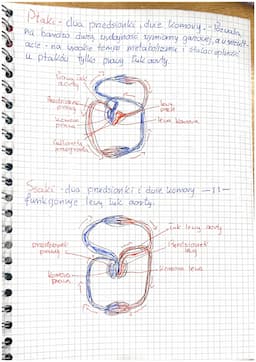 Ptaki - dwa przedsionki, dwie komory. - Pozwala
na bardzo dużą wydajność wymiany gazowej, a w
na wysokie tempo metabolizmu i stałocieplność
u ptaków tylko prawy łuk aorty.
Prawy łuk
aorty
Przedsionek
prawy
lewy
komora
prawa
lewa komora
Ssaki - dwa przedsionki i dwie komory —11—
funkcjonuje lewy łuk aorty.
Łuk lewy aorty
przedsionek
prawy
Przedsionek
lewy
komora
prawa
komora lewa